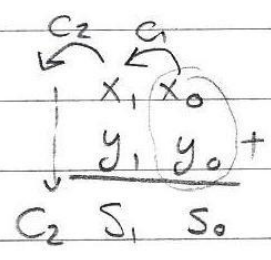 C₂ C₁
x₁ x₀
y₁ y₀ +
C₂ S₁ S₀